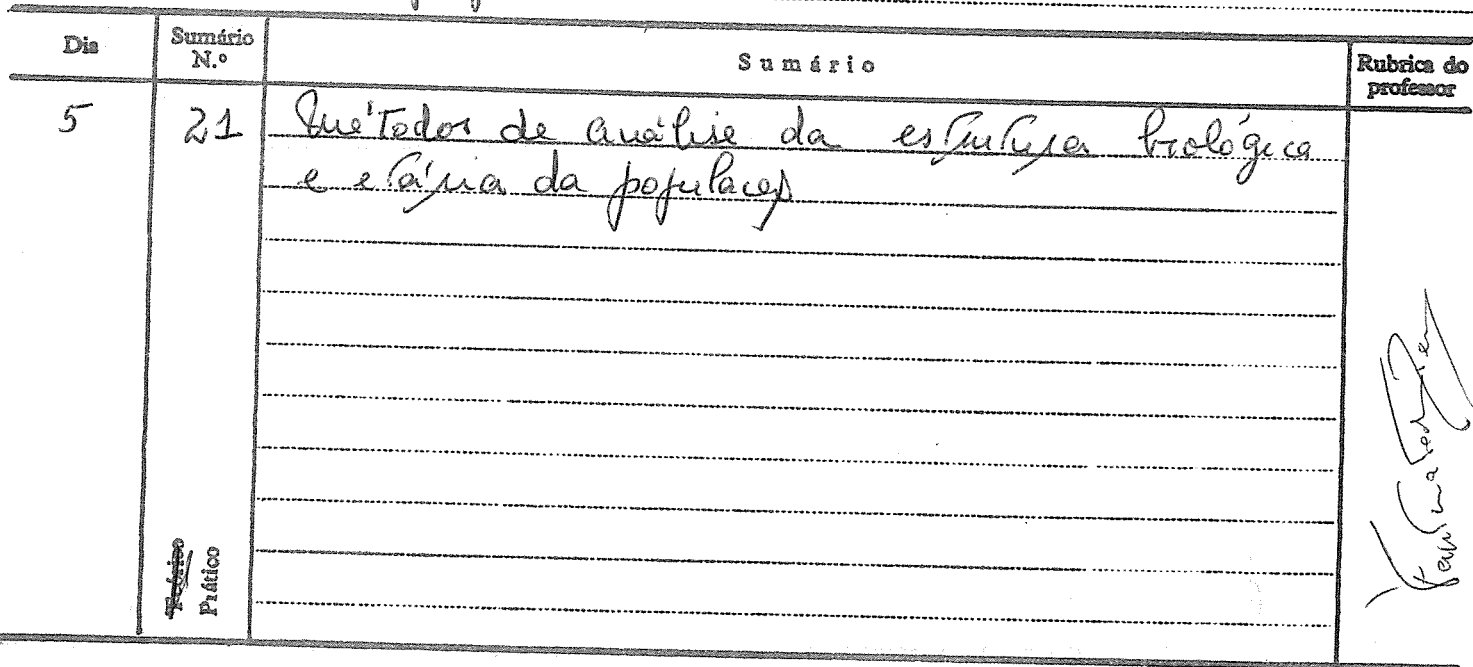 Dia
Sumário N.º
Sumário
Rubrica do professor
5
21
Métodos de análise da estrutura biológica
e etária da população
Teórico
Prático